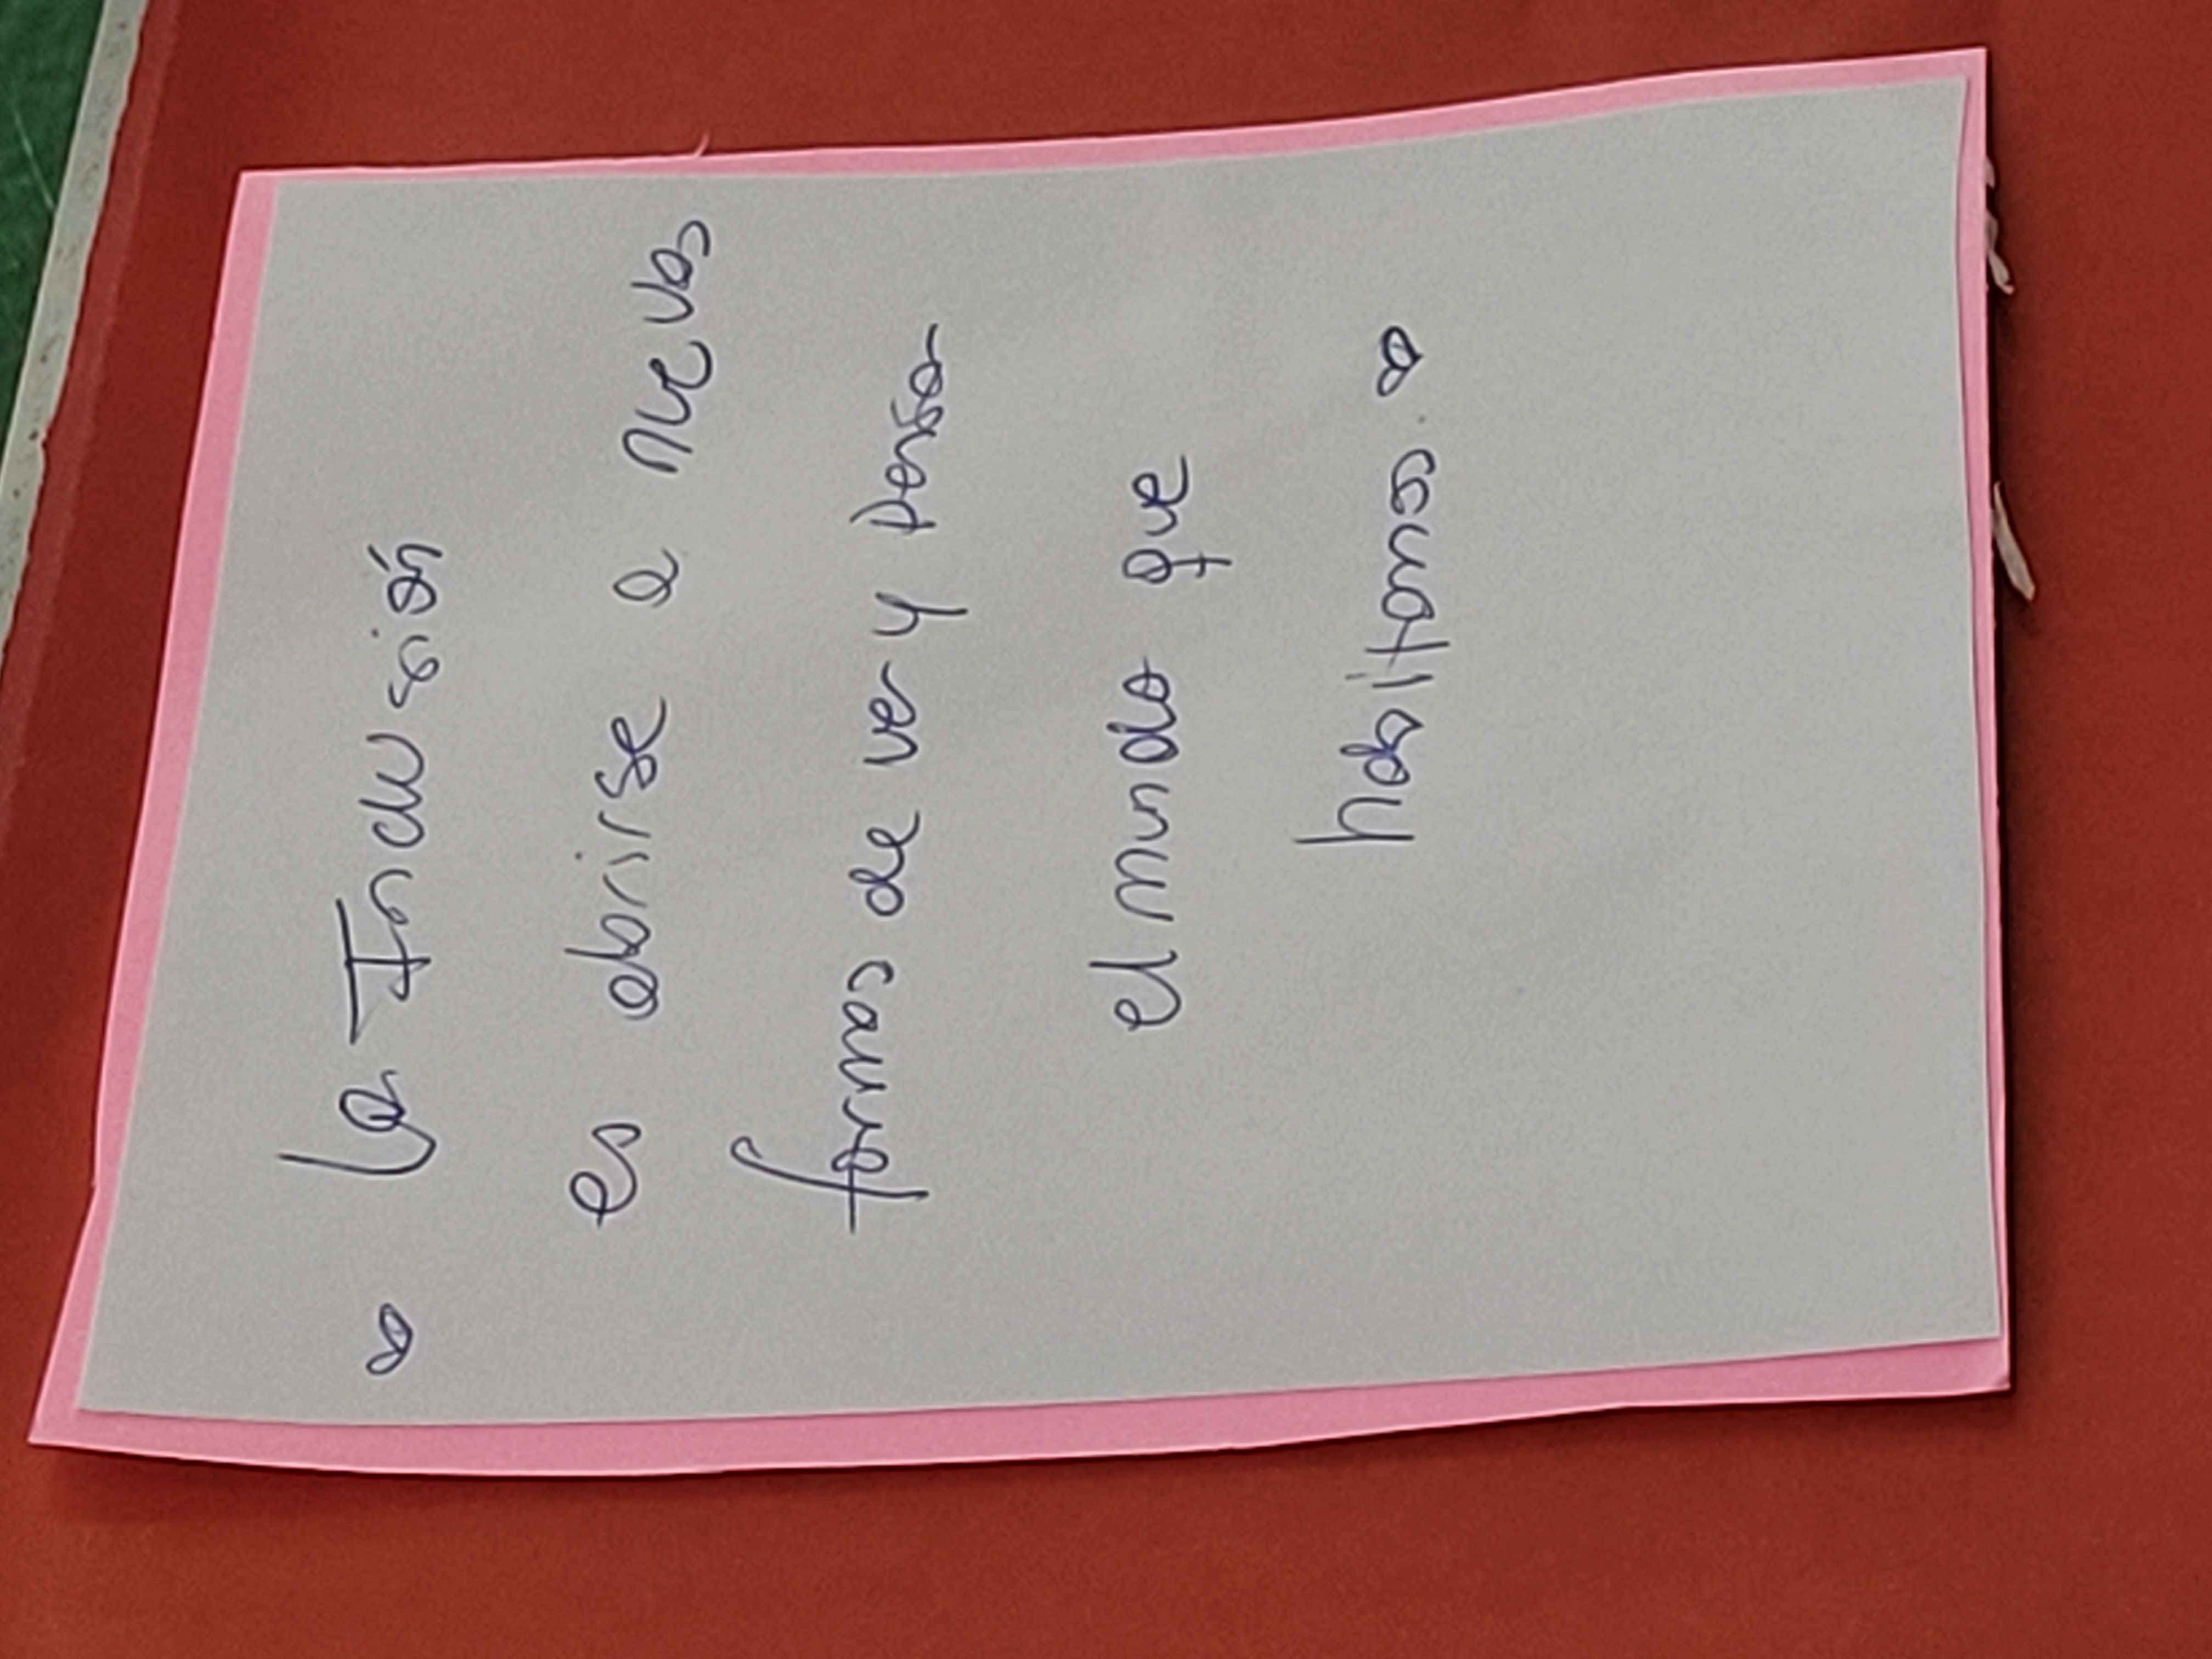 La Inclusión
es abrirse a nuevas
formas de ver y pensar
el mundo que
habitamos